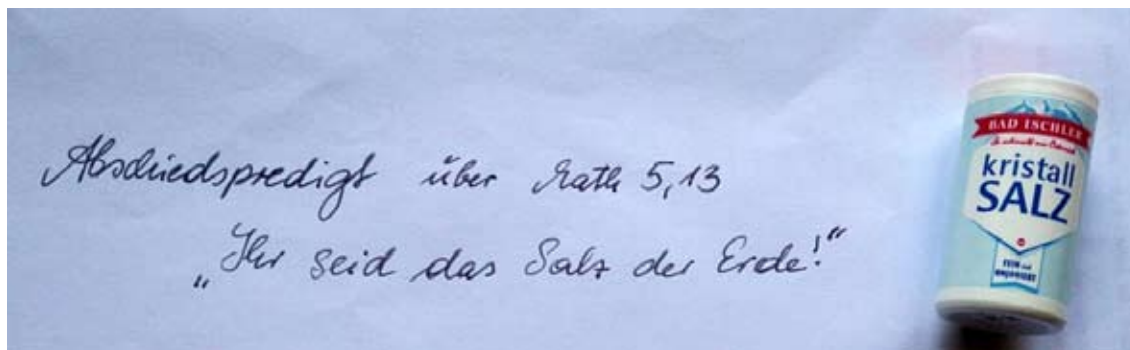 Abschiedspredigt über Math 5,13
„Ihr seid das Salz der Erde!“
BAD ISCHLER
kristall
SALZ